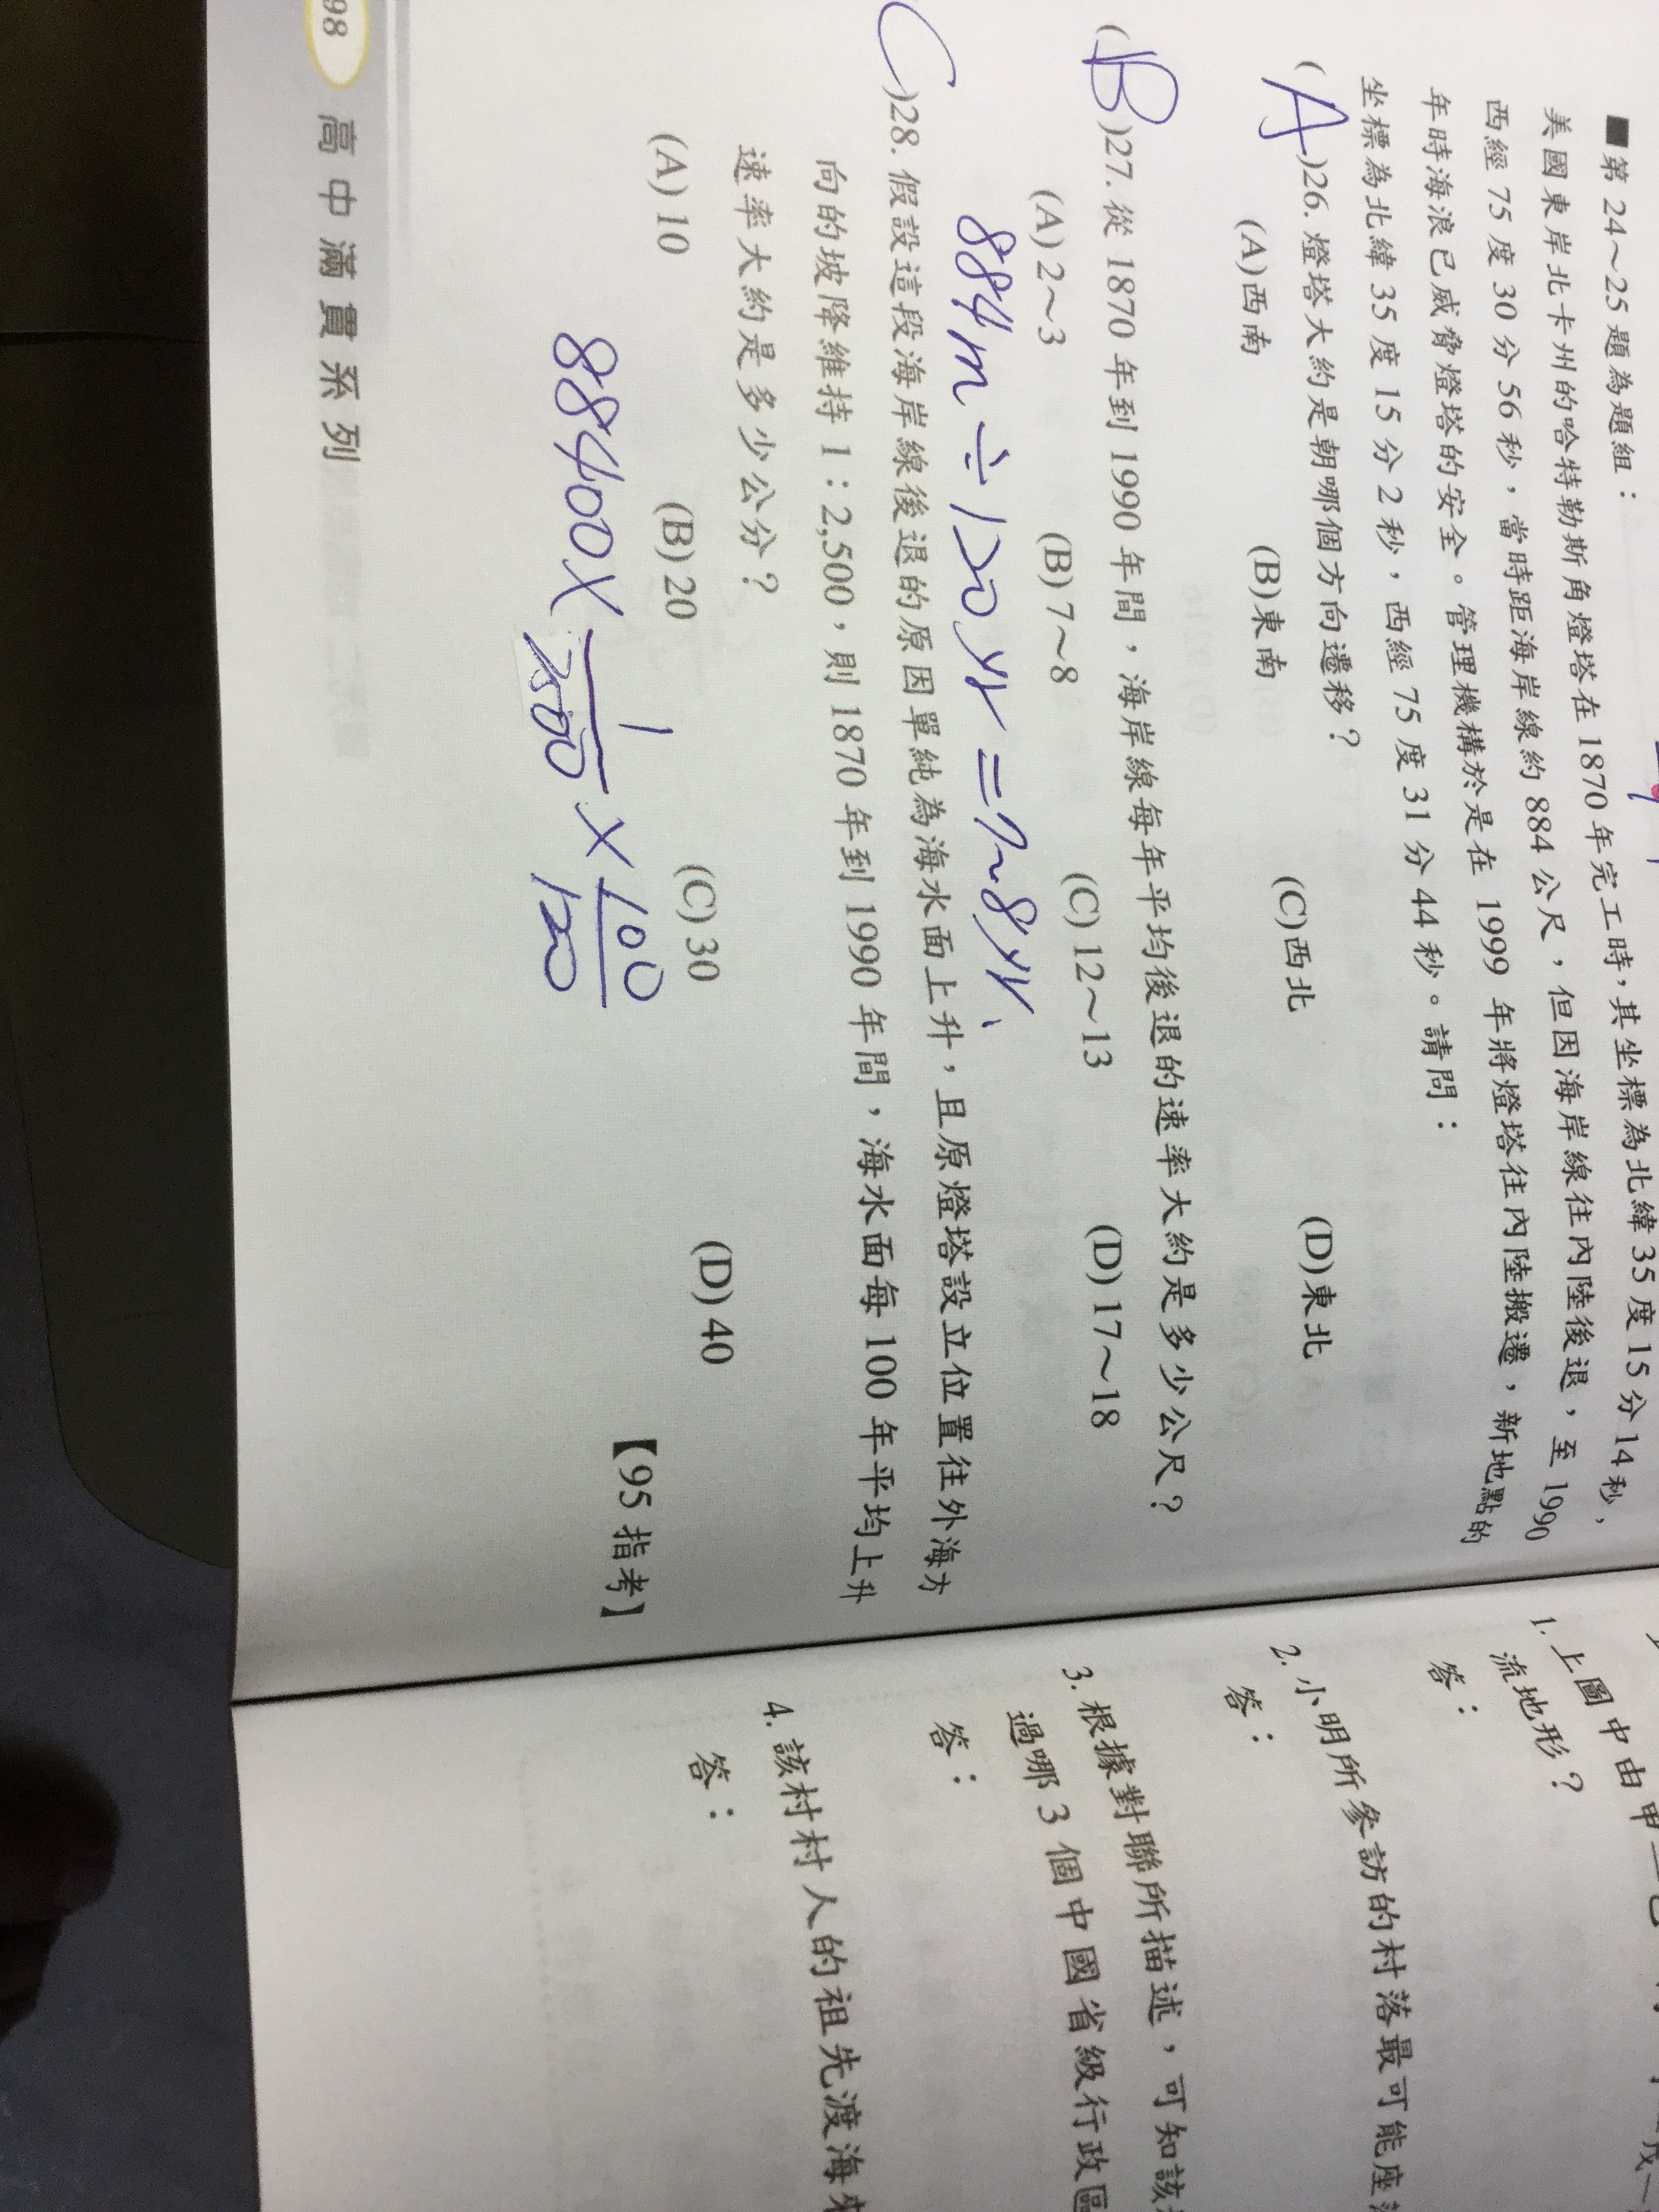 ■第 24～25 題為題組：
美國東岸北卡州的哈特勒斯角燈塔在 1870 年完工時，其坐標為北緯 35 度 15 分 14 秒，
西經 75 度 30 分 56 秒，當時距海岸線約 884 公尺，但因海岸線往內陸後退，至 1990
年時海浪已威脅燈塔的安全。管理機構於是在 1999 年將燈塔往內陸搬遷，新地點的
坐標為北緯 35 度 15 分 2 秒，西經 75 度 31 分 44 秒。請問：
( A )26. 燈塔大約是朝哪個方向遷移？
(A)西南 (B)東南 (C)西北 (D)東北
( B )27. 從 1870 年到 1990 年間，海岸線每年平均後退的速率大約是多少公尺？
(A) 2～3 (B) 7～8 (C) 12～13 (D) 17～18
884m ÷ 120yr = 7~8yr、
( C )28. 假設這段海岸線後退的原因單純為海水面上升，且原燈塔設立位置往外海方
向的坡降維持 1：2,500，則 1870 年到 1990 年間，海水面每 100 年平均上升
速率大約是多少公分？
(A) 10 (B) 20 (C) 30 (D) 40
【95 指考】
88400 × 1/2500 × 100/120
98 高中滿貫系列
1. 上圖中由甲
流地形？
答：
2. 小明所參訪的村落最可能座
答：
3. 根據對聯所描述，可知該
過哪 3 個中國省級行政區
答：
4. 該村村人的祖先渡海來
答：